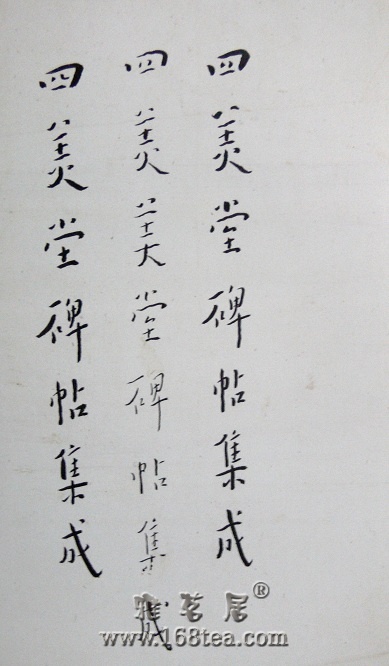 四美堂碑帖集成
四美美堂碑帖集成
四美堂碑帖集成
雅茗居®
www.168tea.com